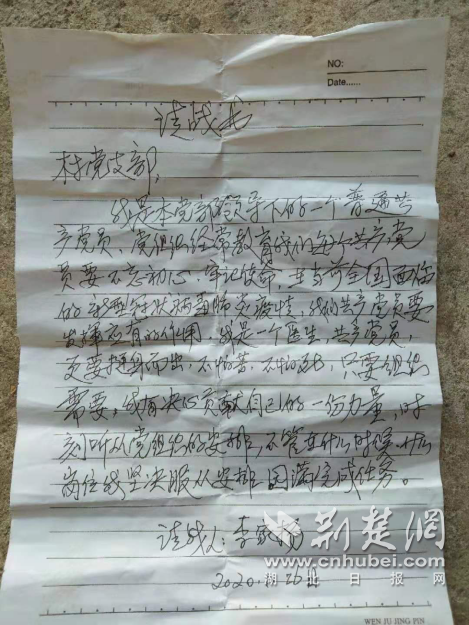 NO:
Date......
请战书
村党支部,
我是本党部领导下的一个普通共
产党员,党组织经常教育我们每个共产党
员要不忘初心,牢记使命,在当前全国面临
的新型冠状病毒肺炎疫情,我们共产党员要
发挥应有的作用。我是一个医生,共产党员,
更要挺身而出,不怕苦,不怕死,只要组织
需要,我有决心贡献自己的一份力量,时
刻听从党组织的安排,不管在什么时候,什么
岗位我坚决服从安排,圆满完成任务。
请战人:李
2020.1.26日
荆楚網
www.cnhubei.com
湖北日报网
WEN JU JING PIN